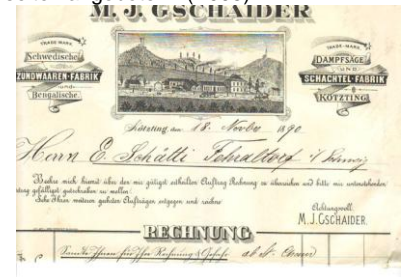 M. J. GSCHAIDER
TRADE MARK.
Schwedische
ZÜNDWAAREN-FABRIK
und
Bengalische.
TRADE-MARK.
DAMPFSÄGE
UND
SCHACHTEL-FABRIK
KÖTZTING
Kötzting, den 18. Novbr 1890
Herrn E. Schätti Fehraltorf
Beehre mich hiemit über den mir gütigst ertheilten Auftrag Rechnung zu überreichen und bitte mir untenstehenden
Betrag gefälligst gutschreiben zu wollen.
Sehe Ihren weitern geehrten Aufträgen entgegen und zeichne
Achtungsvoll
M. J. GSCHAIDER.
RECHNUNG
Sandte Ihnen für Ihre Rechnung & Gefahr ab St. Cham